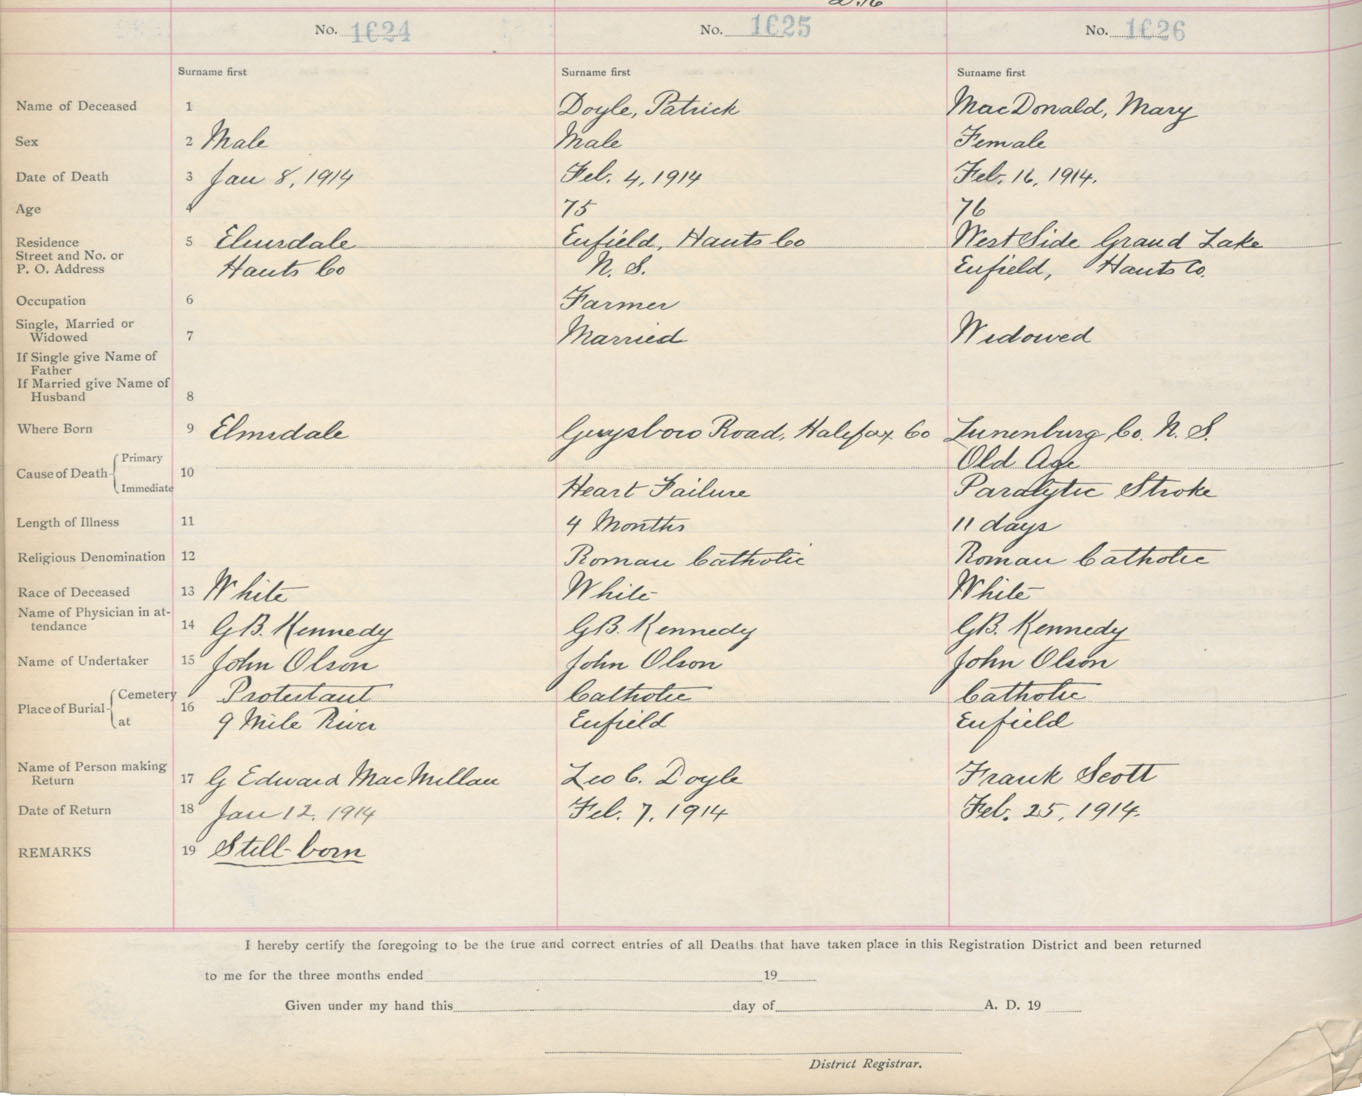 No. 1624 No. 1625 No. 1626
Surname first Surname first Surname first
Name of Deceased 1 Doyle, Patrick MacDonald, Mary
Sex 2 Male Male Female
Date of Death 3 Jan 8, 1914 Feb. 4, 1914 Feb. 16, 1914.
Age 4 75 76
Residence 5 Elmsdale Enfield, Hants Co West Side Grand Lake
Street and No. or
P. O. Address Hants Co N. S. Enfield, Hants Co.
Occupation 6 Farmer
Single, Married or
Widowed 7 Married Widowed
If Single give Name of
Father
If Married give Name of
Husband 8
Where Born 9 Elmsdale Guysboro Road, Halifax Co Lunenburg Co. N. S.
Primary Old Age
Cause of Death 10
Immediate Heart Failure Paralytic Stroke
Length of Illness 11 4 Months 11 days
Religious Denomination 12 Roman Catholic Roman Catholic
Race of Deceased 13 White White White
Name of Physician in at-
tendance 14 G.B. Kennedy G.B. Kennedy G.B. Kennedy
Name of Undertaker 15 John Olson John Olson John Olson
Cemetery Protestant Catholic Catholic
Place of Burial 16
at 9 Mile River Enfield Enfield
Name of Person making
Return 17 G Edward MacMillan Leo C. Doyle Frank Scott
Date of Return 18 Jan 12, 1914 Feb. 7, 1914 Feb. 25, 1914.
REMARKS 19 Still-born
I hereby certify the foregoing to be the true and correct entries of all Deaths that have taken place in this Registration District and been returned
to me for the three months ended 19
Given under my hand this day of A. D. 19
District Registrar.